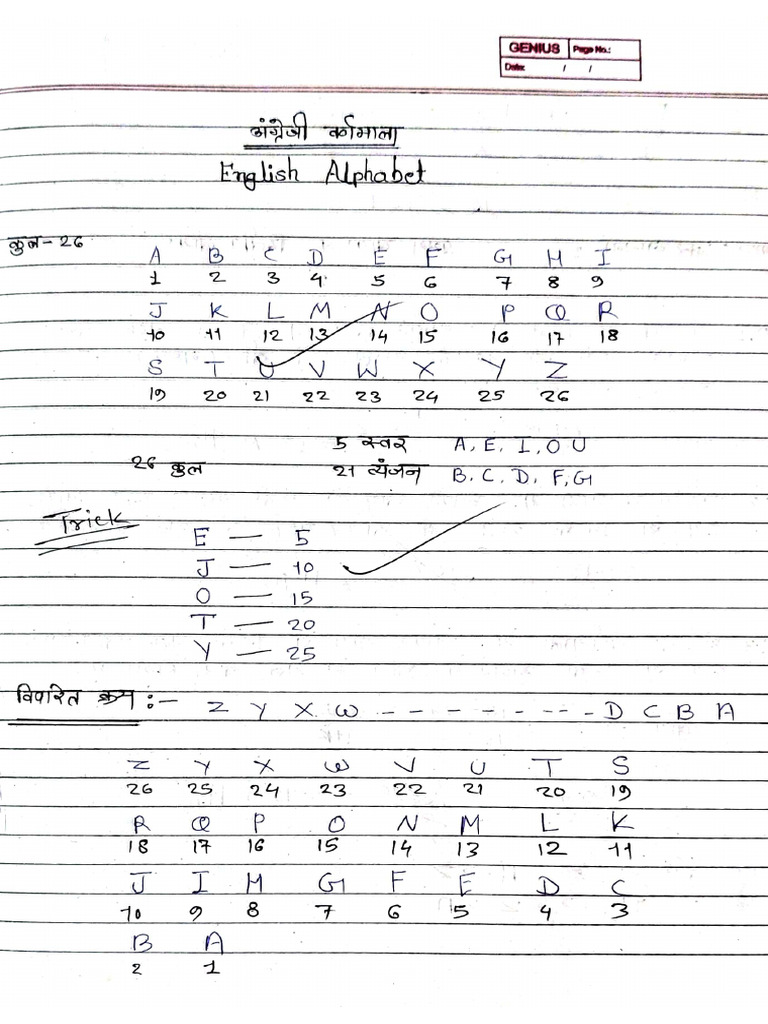 GENIUS Page No.:
Date: / /
अंग्रेजी वर्णमाला
English Alphabet
कुल- 26
A B C D E F G H I
1 2 3 4 5 6 7 8 9
J K L M N O P Q R
10 11 12 13 14 15 16 17 18
S T U V W X Y Z
19 20 21 22 23 24 25 26
5 स्वर A, E, I, O U
26 कुल 21 व्यंजन B, C, D, F, G
Trick
E — 5
J — 10
O — 15
T — 20
Y — 25
विपरित क्रम :- Z Y X W - - - - - - - - D C B A
Z Y X W V U T S
26 25 24 23 22 21 20 19
R Q P O N M L K
18 17 16 15 14 13 12 11
J I H G F E D C
10 9 8 7 6 5 4 3
B A
2 1